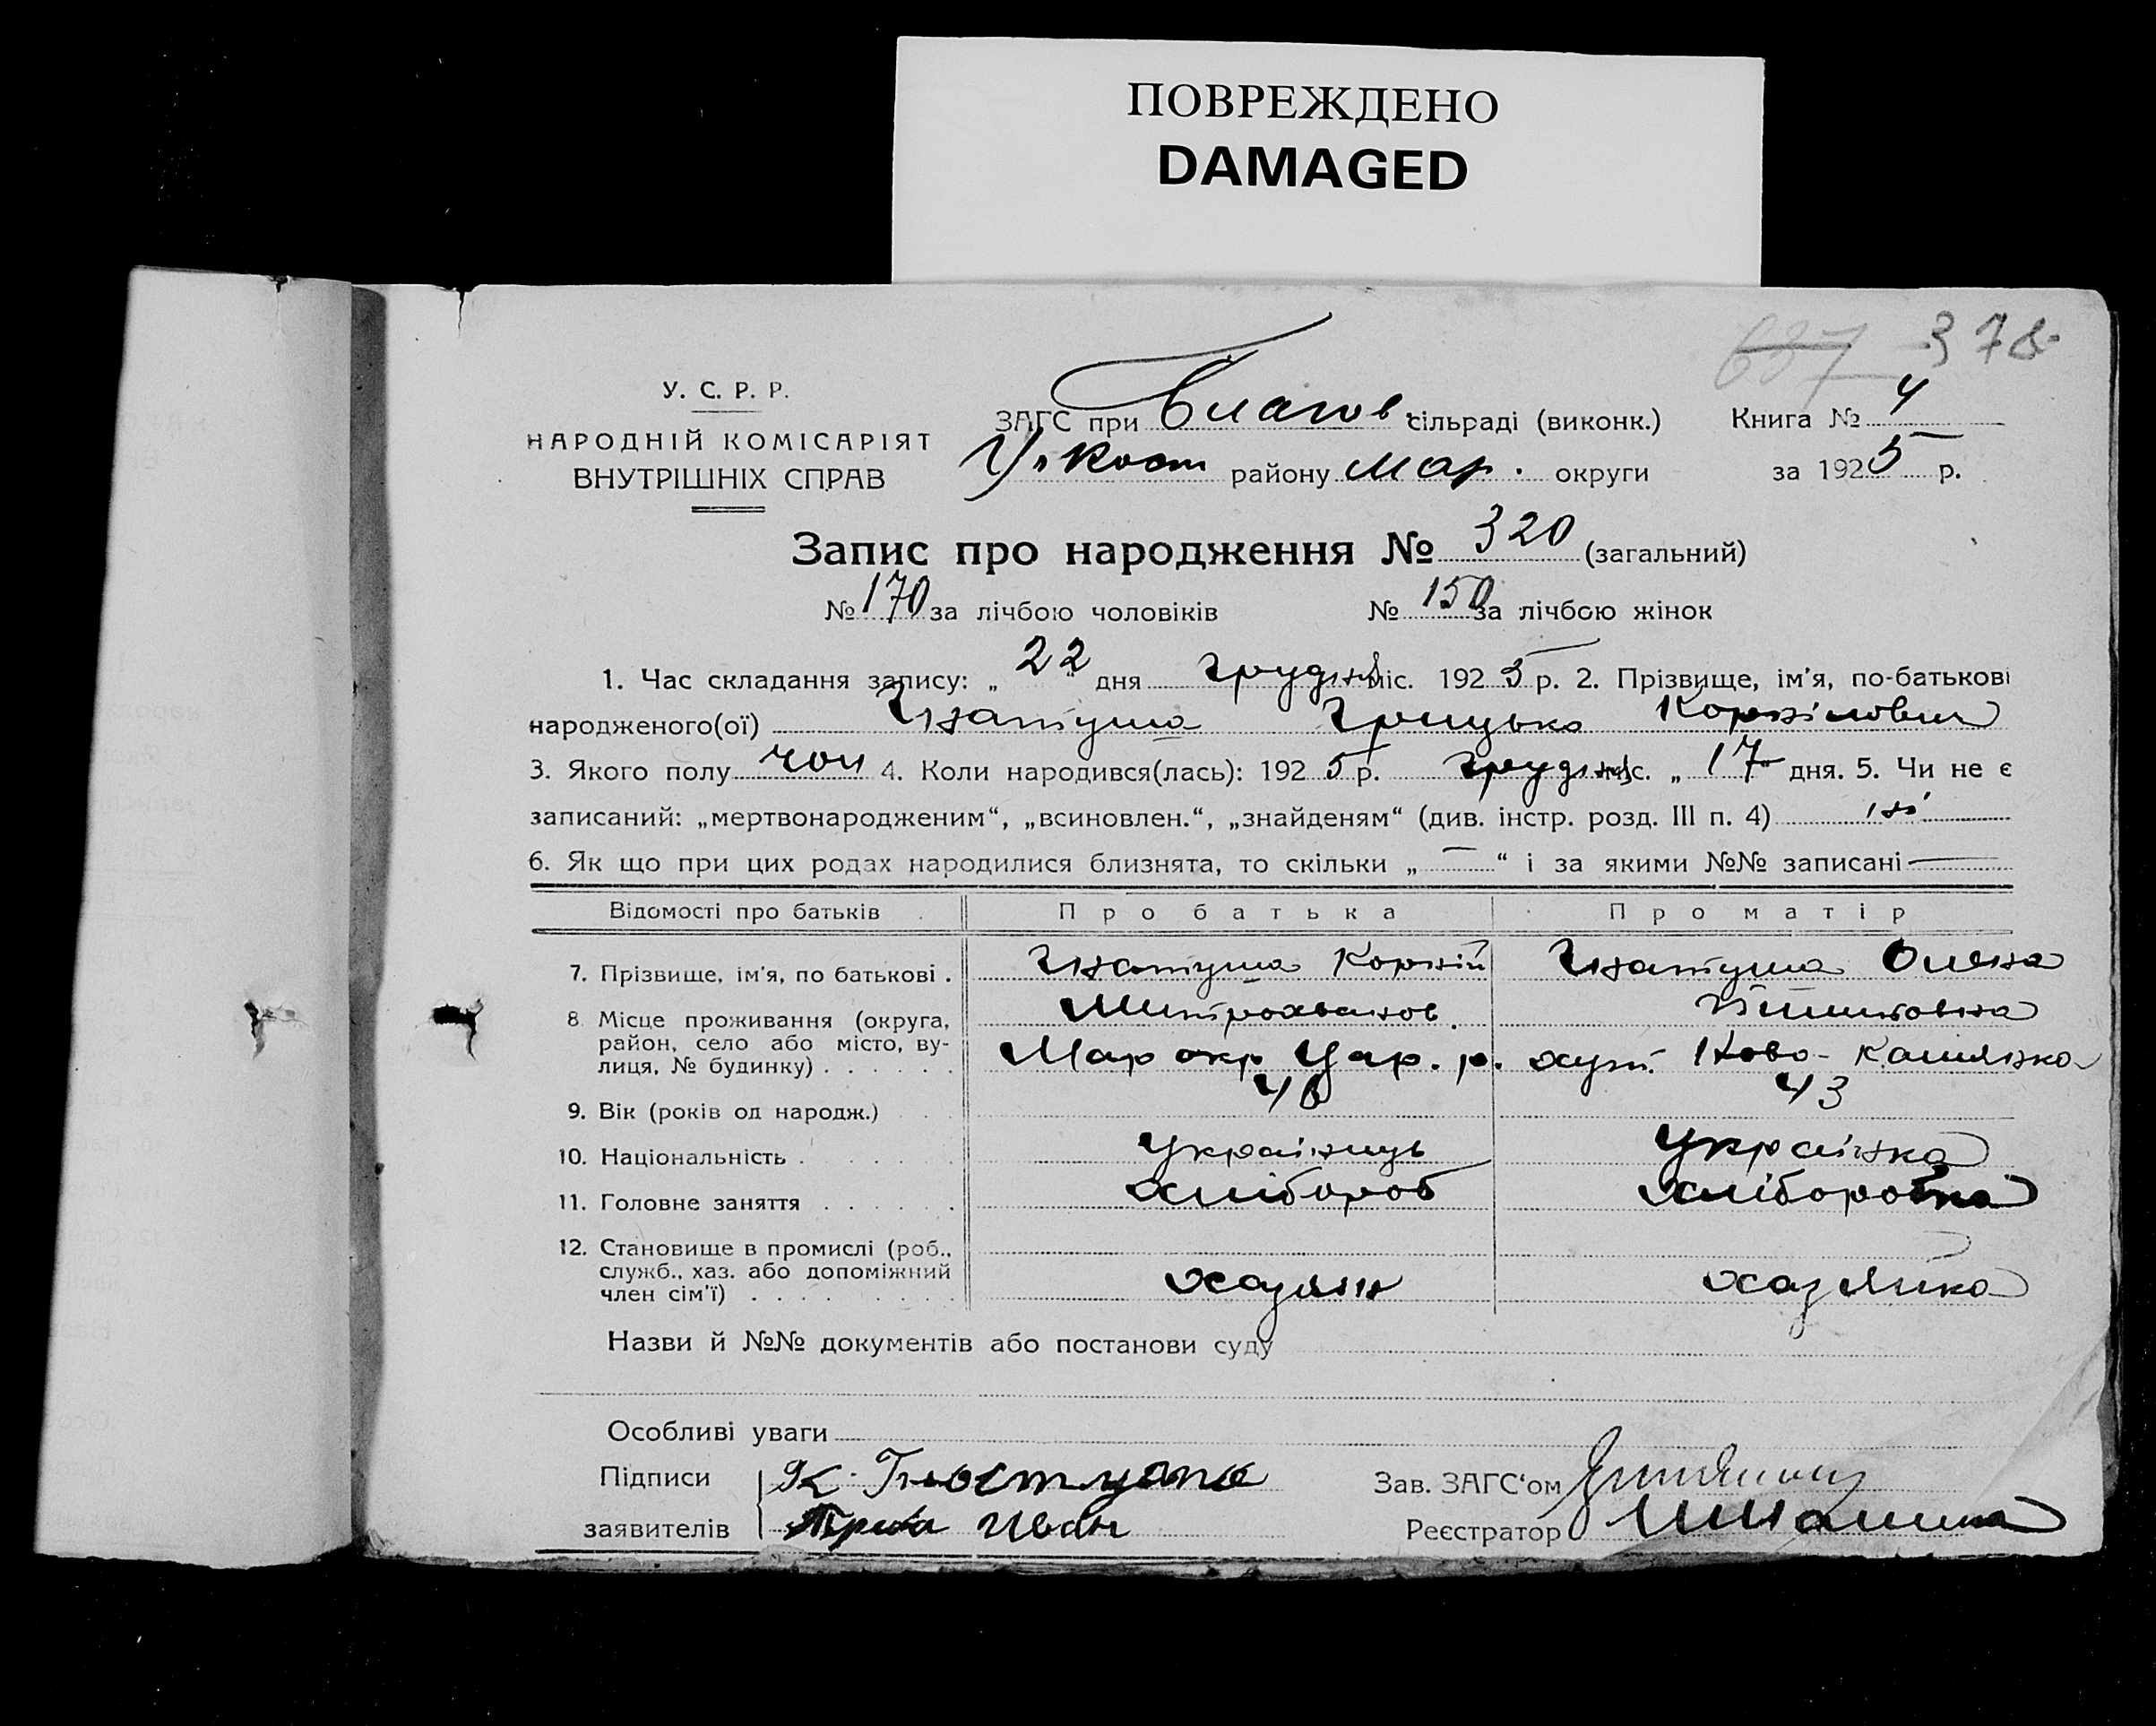 ПОВРЕЖДЕНО
DAMAGED
378
637
У. С. Р. Р.
НАРОДНІЙ КОМІСАРІЯТ
ВНУТРІШНІХ СПРАВ
ЗАГС при Благов сільраді (виконк.) Книга № 4
району Мар. округи за 1925 р.
Запис про народження № 320 (загальний)
№ 170 за лічбою чоловіків № 150 за лічбою жінок
1. Час складання запису: „ 22 " дня грудня міс. 1925 р. 2. Прізвище, ім'я, по-батькові
народженого(ої) Гнатуша Грицько Корнілович
3. Якого полу чол 4. Коли народився(лась): 1925 р. грудня міс. „ 17 " дня. 5. Чи не є
записаний: „мертвонародженим“, „всиновлен.“, „знайденям“ (див. інстр. розд. III п. 4) ні
6. Як що при цих родах народилися близнята, то скільки „ — “ і за якими №№ записані —
Відомості про батьків Про батька Про матір
7. Прізвище, ім'я, по батькові . Гнатуша Корній Гнатуша Олена
Митрохванов.
8 Місце проживання (округа,
район, село або місто, ву-
лиця, № будинку) . . . . . . Мар окр Цар. р. хут. Ново-
9. Вік (років од народж.) . . . 46 43
10. Національність . . . . . . Українець Українка
11. Головне заняття . . . . . . хлібороб хліборобка
12. Становище в промислі (роб.,
служб., хаз. або допоміжний
член сім'ї) . . . . . . . . . хазяїн хазяйка
Назви й №№ документів або постанови суду
Особливі уваги
Підписи К. Зав. ЗАГС‘ом
заявителів Иван Реєстратор